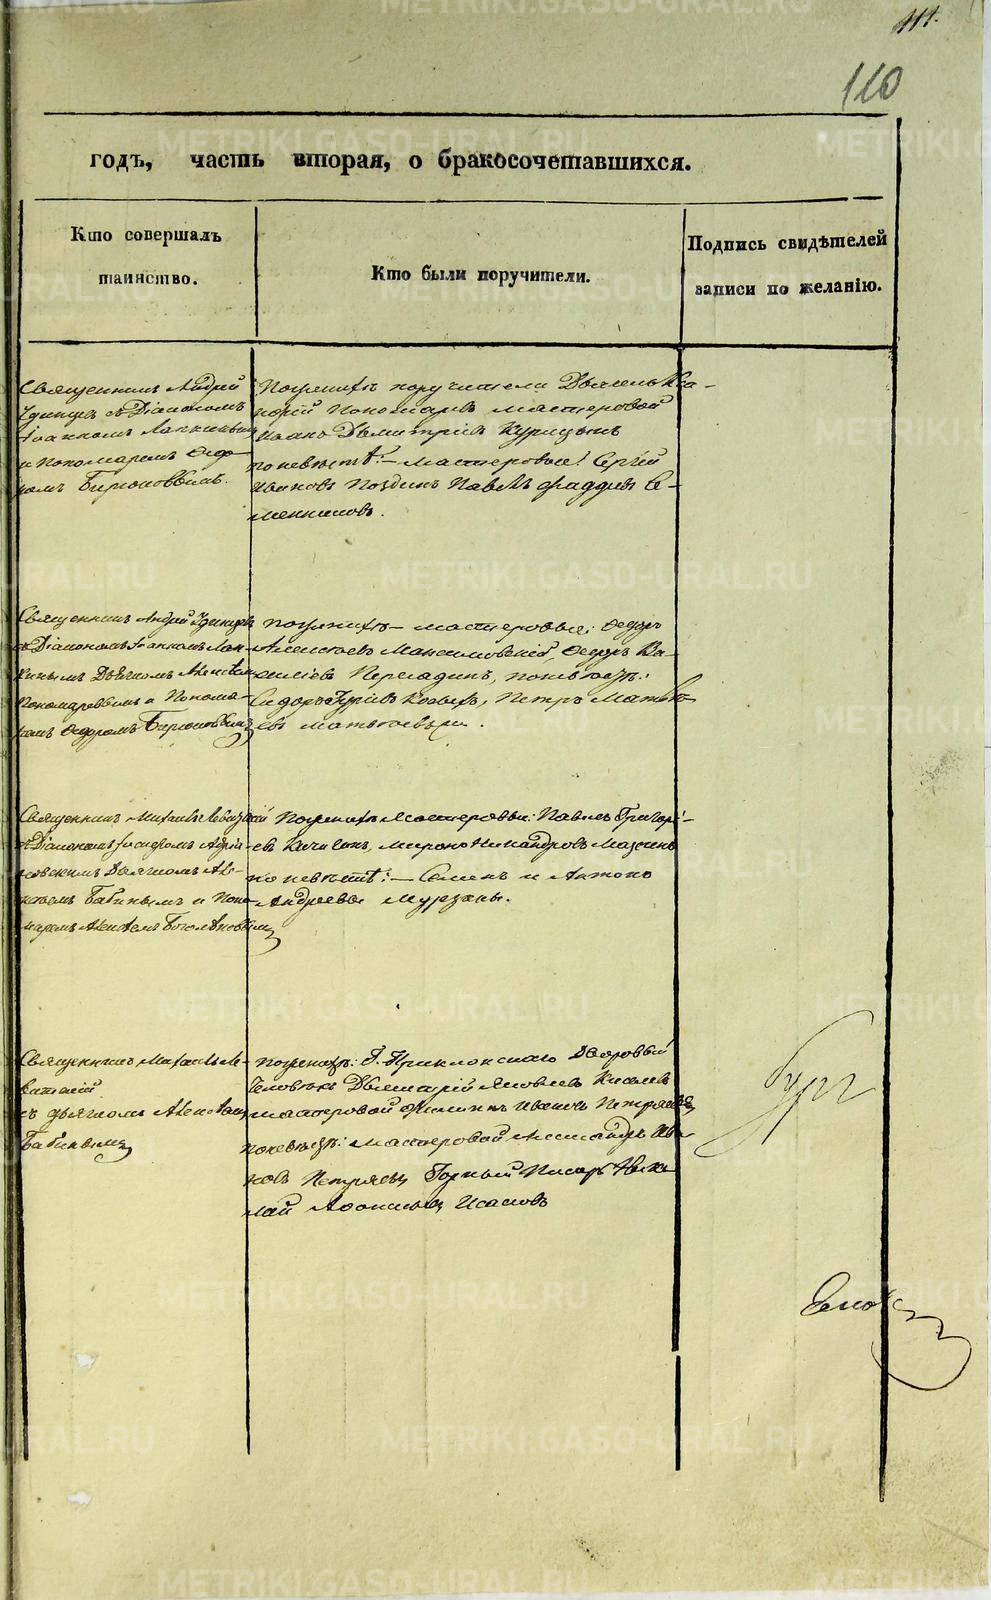 111.
110
годъ, часть вторая, о бракосочетавшихся.
Кто совершалъ
таинство.
Кто были поручители.
Подпись свидѣтелей
записи по желанію.
Священникъ Андрей
Удинцев съ Діакономъ
Іоанномъ Лапкинымъ
и пономаремъ Федо-
ромъ Бирюковымъ.
Пожениху поручители
порій Пономаревъ мастеровой
Иванъ Дмитріевъ Курицынъ
по невѣстѣ: мастеровые: Сергій
Ивановъ Поздинъ Павелъ Фаддѣевъ Се-
менниковъ.
Священникъ Андрей Удинцев
съ Діакономъ Іоанномъ Лап-
кинымъ Дьячкомъ Алексѣем
Пономаревымъ и Понома-
ремъ Федоромъ Бирюковымъ
пожениху мастеровые: Федоръ
Алексѣевъ Максимовскій, Федоръ Ва-
сильевъ Пересадинъ, поневѣстѣ:
Сидоръ Козыхъ, Петръ Матвѣ-
евъ
Священникъ Михаилъ Левитскій
съ Діакономъ
Дьячкомъ Але-
ксѣемъ Бабинымъ и Поно-
маремъ Алексѣемъ Боголѣповымъ
Пожениху Мастеровые: Павелъ Григорі-
евъ Качигинъ, Миронъ Никандровъ Мазеинъ
по невѣстѣ: Семенъ и Антонъ
Андреевы Мурзины.
Священникъ Михаилъ Ле-
витскій
съ дьячкомъ Алексѣемъ
Бабинымъ
Пожениху: Г. Приклонскаго Дворовый
Человѣкъ Дмитрій Яковлевъ Киселевъ
мастеровой Филиппъ Ивановъ Петряевъ
поневѣстѣ: мастеровой Александръ Ива-
новъ Петряевъ Горный Писарь Нико-
лай Исаковъ